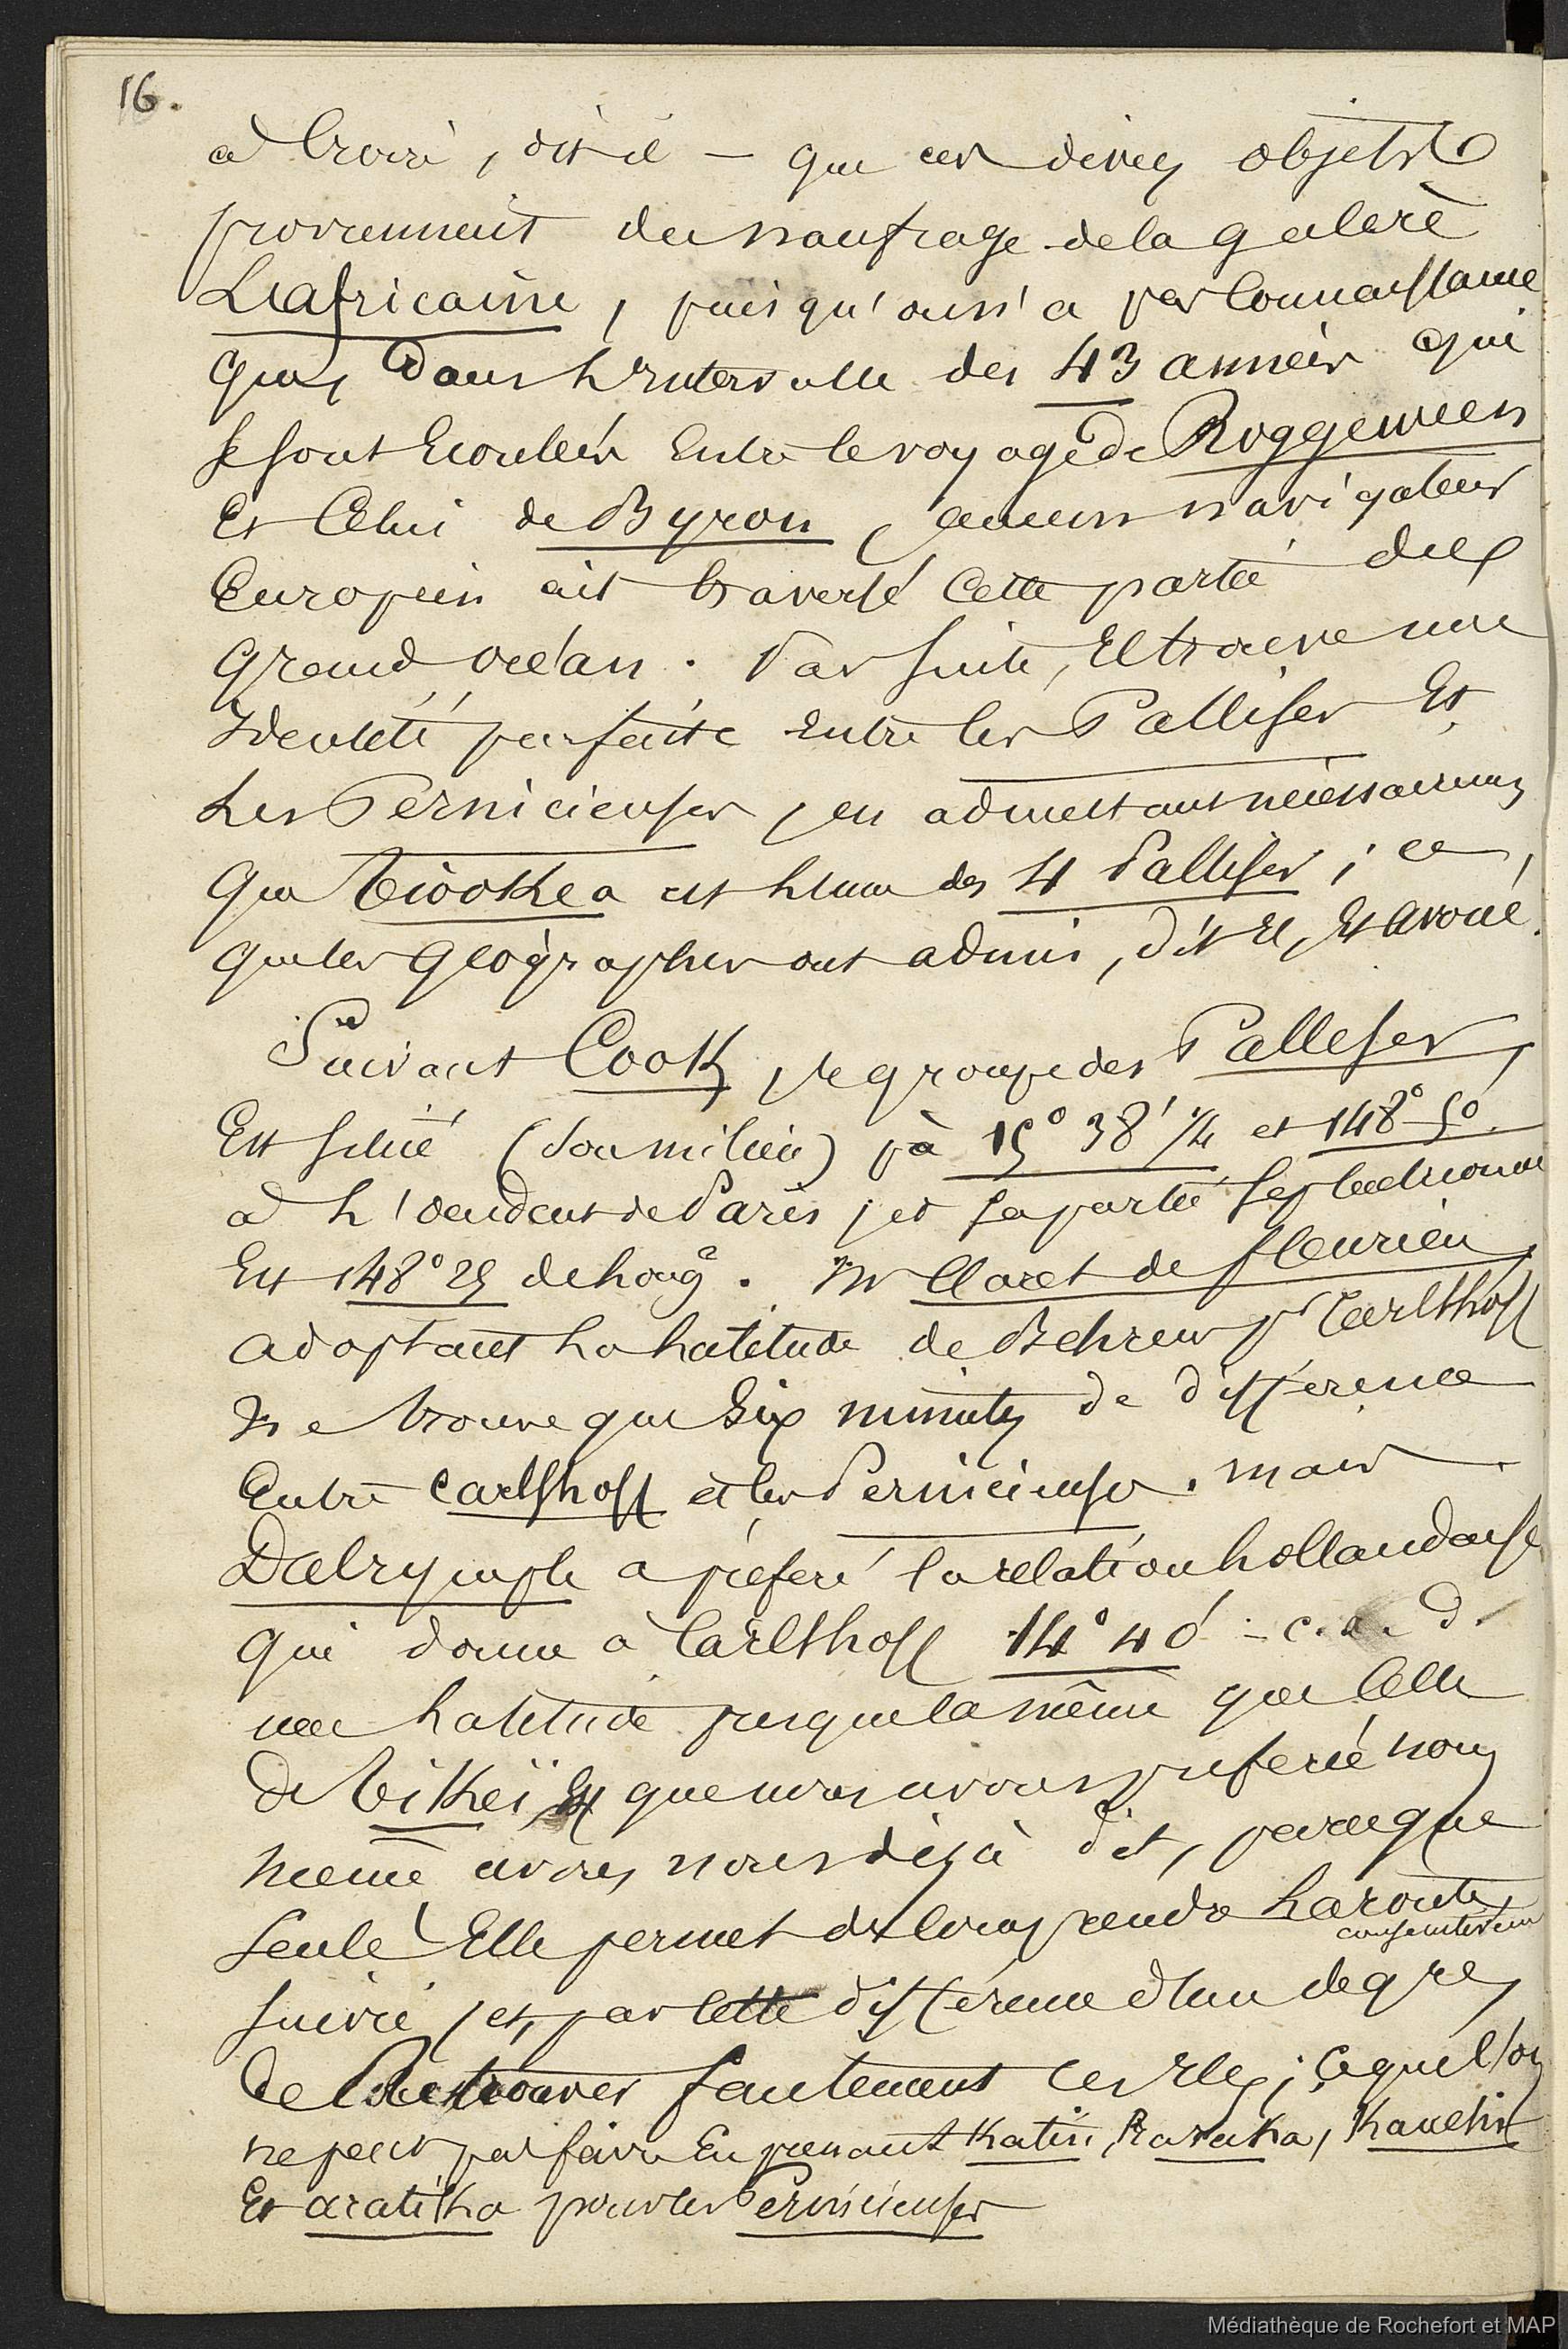 16.
à croire, dit-il – que ces divers objets
proviennent du naufrage de la galère
L'africaine, puisqu'on n'a pas connaissance
que, dans l'intervalle des 43 années qui
se sont écoulées entre le voyage de Roggeween
et celui de Byron, aucun navigateur
Européen ait traversé cette partie du
grand océan. Par suite, il trouve une
identité parfaite entre les Palliser et
les Pernicieuses, en admettant nécessairement
que Tiookea est l'une des 4 Palliser; ce
que les géographes ont admis, dit-il, et avoué.
Suivant Cook, le groupe des Palliser,
est situé (son milieu) à 15° 38' 1/4 et 148° 50'
à l'occident de Paris; et sa partie septentrionale
est 148° 25 de longe. Mr Claret de fleurieu,
adoptant la latitude de Behrens pr Carlshoff
ne trouve que six minutes de différence
entre Carlshoff et les Pernicieuses. mais
Dalrymple a préféré la relation hollandaise
qui donne à Carlshoff 14° 40' - c. a. d.
une latitude presque la même que celle
de Tikei, et que nous avons préférée nous
même avons nous déjà dit, parceque
seule elle permet de comprendre la route
consécutivement
suivie, et, par cette différence d'un degré,
de retrouver seulement ces iles; ce que l'on
ne peut pas faire en prenant Katiu, Raraka, Kauehi
et aratika pour les Pernicieuses
Médiathèque de Rochefort et MAP